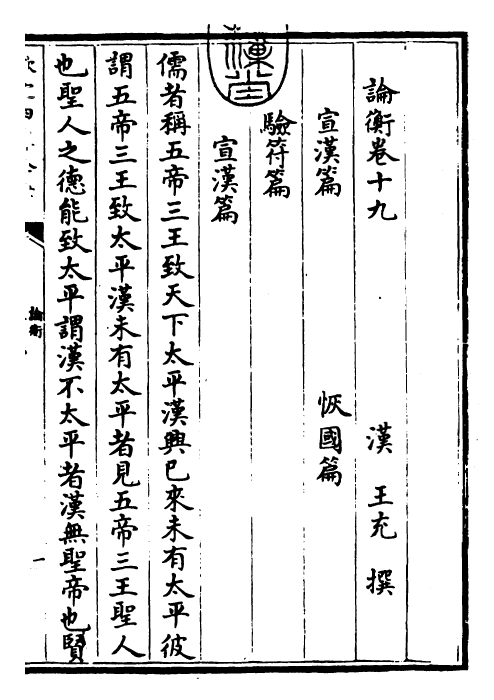 論衡卷十九
漢 王充 撰
宣漢篇 恢國篇
驗符篇
宣漢篇
儒者稱五帝三王致天下太平漢興已來未有太平彼
謂五帝三王致太平漢未有太平者見五帝三王聖人
也聖人之德能致太平謂漢不太平者漢無聖帝也賢
論衡
一